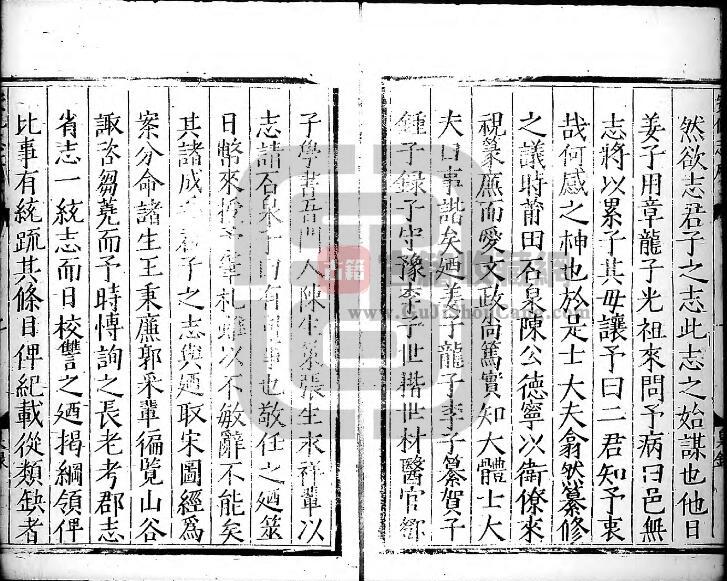 然欲志君子之志此志之始謀也他日
姜子用章龍子光祖來問予病曰邑無
志將以累子其毋讓予曰二君知予衷
哉何感之神也於是士大夫翕然纂修
之議時莆田石泉陳公德寧以衛僚來
視篆廉而愛文政尚篤實知大體士大
夫曰事諧矣廼姜子龍子李子纂賀子
鍾子錄子守豫李子世揩世材醫官鄒
子學書吾門人陳生策張生求祥輩以
志請石泉子曰有是事也敬任之廼筮
日幣來授予筆札蠟以不敏辭不能矣
其諸成 君子之志與廼取宋圖經爲
案分命諸生王秉廉郭采輩徧覽山谷
諏咨芻蕘而予時愽詢之長老考郡志
省志一統志而日校讐之廼揭綱領俾
比事有統疏其條目俾紀載從類缺者
古籍
www.GuJiShopCang.com